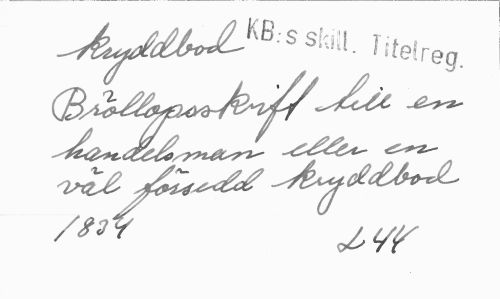 kryddbod KB:s skill. Titelreg.
Bröllopsskrift till en
handelsman eller en
väl försedd kryddbod
1834
L 44